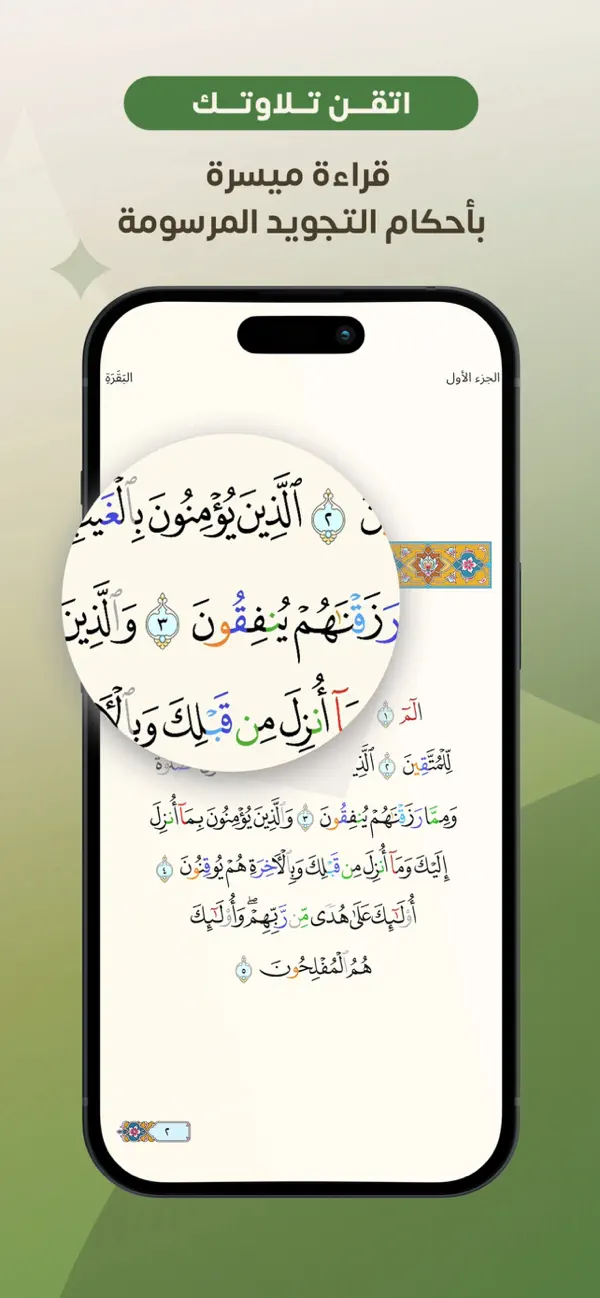 اتقـن تـلاوتـك
قراءة ميسرة
بأحكام التجويد المرسومة
الجزء الأول
البَقَرَةِ
ٱلَّذِينَ يُؤْمِنُونَ بِٱلْغَيْبِ ٢
رَزَقْنَٰهُمْ يُنفِقُونَ ٣ وَٱلَّذِينَ
مَآ أُنزِلَ مِن قَبْلِكَ وَبِٱلْأ
الٓمٓ ١
لِّلْمُتَّقِينَ ٢ ٱلَّذِ
وَمِمَّا رَزَقْنَٰهُمْ يُنفِقُونَ ٣ وَٱلَّذِينَ يُؤْمِنُونَ بِمَآ أُنزِلَ
إِلَيْكَ وَمَآ أُنزِلَ مِن قَبْلِكَ وَبِٱلْأَخِرَةِ هُمْ يُوقِنُونَ ٤
أُو۟لَٰٓئِكَ عَلَىٰ هُدًى مِّن رَّبِّهِمْ ۖ وَأُو۟لَٰٓئِكَ
هُمُ ٱلْمُفْلِحُونَ ٥
٢